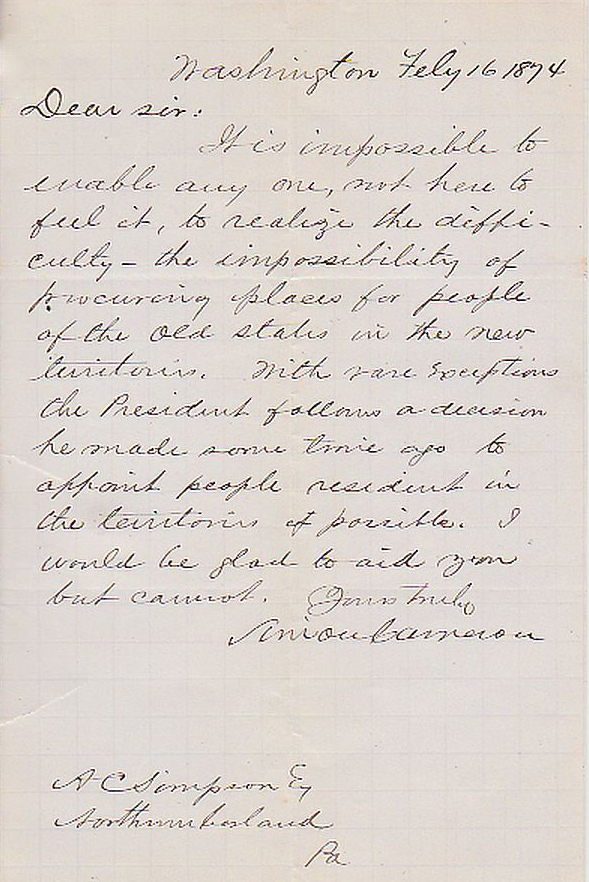 Washington Feby 16 1874
Dear sir:
It is impossible to
enable any one, not here to
feel it, to realize the diffi-
culty - the impossibility of
procuring places for people
of the old states in the new
territories. With rare exceptions
the President follows a decision
he made some time ago to
appoint people resident in
the territories if possible. I
would be glad to aid you
but cannot. Yours truly
Simon Cameron
A C Simpson Esq
Northumberland
Pa